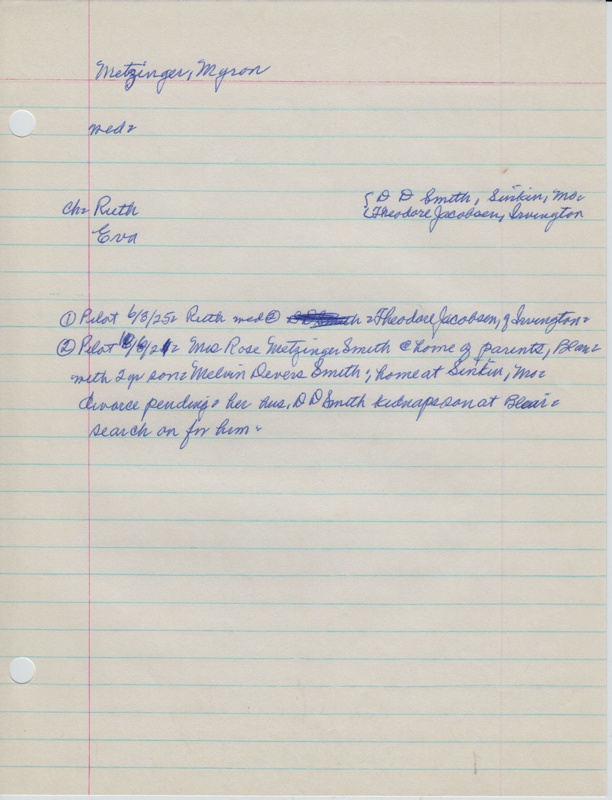 Metzinger, Myron
med=
ch= Ruth { D D Smith, Sinkin, Mo=
Eva { Theodore Jacobsen, Irvington
① Pilot 6/3/25= Ruth med @ = Theodore Jacobsen, of Irvington=
② Pilot Mrs Rose Metzinger Smith @ home of parents, Blair=
with 2 yr son= Melvin Devers Smith; home at Sinkin, Mo=
divorce pending= her hus, D D Smith kidnaps son at Blair=
search on for him=